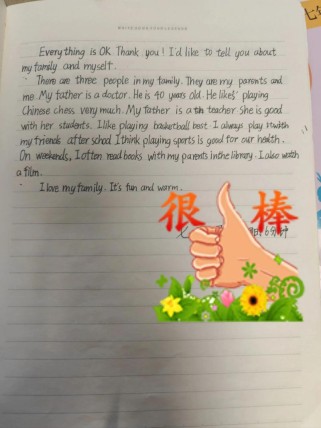 Everything is OK. Thank you! I'd like to tell you about
my family and myself.
There are three people in my family. They are my parents and
me. My father is a doctor. He is 40 years old. He likes playing
Chinese chess very much. My father is a teacher She is good
with her students. I like playing basketball best. I always play it with
my friends after school I think playing sports is good for our health.
On weekends, I often read books with my parents in the library. I also watch
a film.
I love my family. It's fun and warm.
很 棒
6分钟